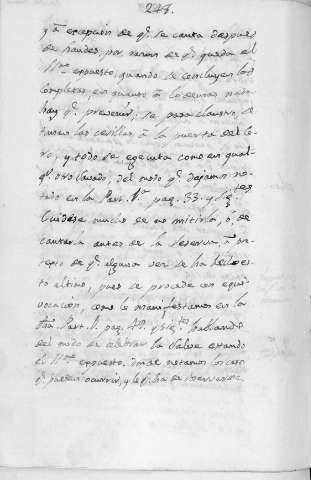 243.
y á excepción de q.e se canta despues
de Laudes, por razon de q.e queda el
S.mo expuesto, quando se concluyen las
completas, en quanto á lo demas nada
hay q.e prevenir; se para claustro, se
toman las cerillas á la puerta del Co-
ro, y todo se egecuta como en qual-
q.r otro Sabado, del modo q.e dejamos no-
tado en la Part. 1.a pag. 33. y sig.tes
Cuidese mucho de no omitirla, ó de
cantarla antes de la reserva, á pre-
texto de q.e alguna vez se ha hecho es-
to ultimo, pues se procede con equi-
vocacion, como lo manifestamos en la
Part. 1. pag. 40. y sig.tes hablando
del modo de celebrar la Salve estando
el S.mo expuesto, donde notamos los casos
q.e pueden ocurrir, y lo q.e ha de observarse